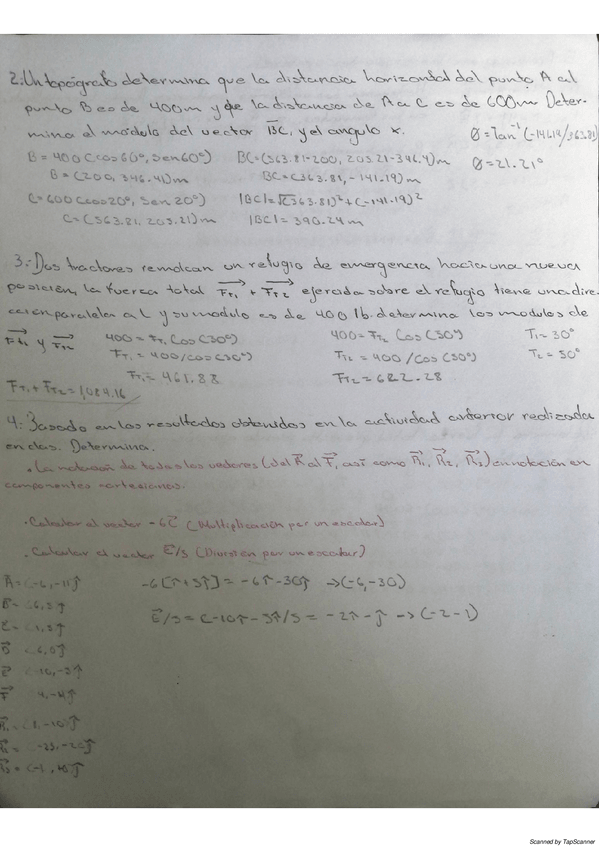 2.- Un topógrafo determina que la distancia horizontal del punto A al
punto B es de 400m y que la distancia de A a C es de 600m Deter-
mina el modulo del vector BC, y el angulo x.
Ø=Tan⁻¹(-141.19/363.81)
B=400(cos60°, sen60°) BC=(363.81-200, 205.21-346.4)m Ø=21.21°
B=(200, 346.41)m BC=(363.81, -141.19)m
C=600(cos20°, sen20°) |BC|=√(363.81)²+(-141.19)²
C=(563.81, 205.21)m |BC|=390.24m
3.- Dos tractores remolcan un refugio de emergencia hacia una nueva
posición, la fuerza total FT1 + FT2 ejercida sobre el refugio tiene una dire-
ccion paralela a L y su modulo es de 400 lb. determina los modulos de
FT1 y FT2 400=FT1 Cos(30°) 400=FT2 Cos(50°) T1=30°
FT1=400/cos(30°) FT2=400/Cos(50°) T2=50°
FT1=461.88 FT2=622.28
FT1+FT2=1,084.16
4.- Basado en los resultados obtenidos en la actividad anterior realizada
en clas. Determina.
• La notación de todos los vectores (del A al F, así como R1, R2, R3) en notación en
componentes cartesianas.
• Calcular el vector -6C (Multiplicación por un escalar)
• Calcular el vector E/5 (División por un escalar)
A=(-6,-11)j -6[i+5j]=-6i-30j →(-6,-30)
B=(6,5)j
E/5=(-10i-5j/5=-2i-j →(-2-1)
Scanned by TapScanner